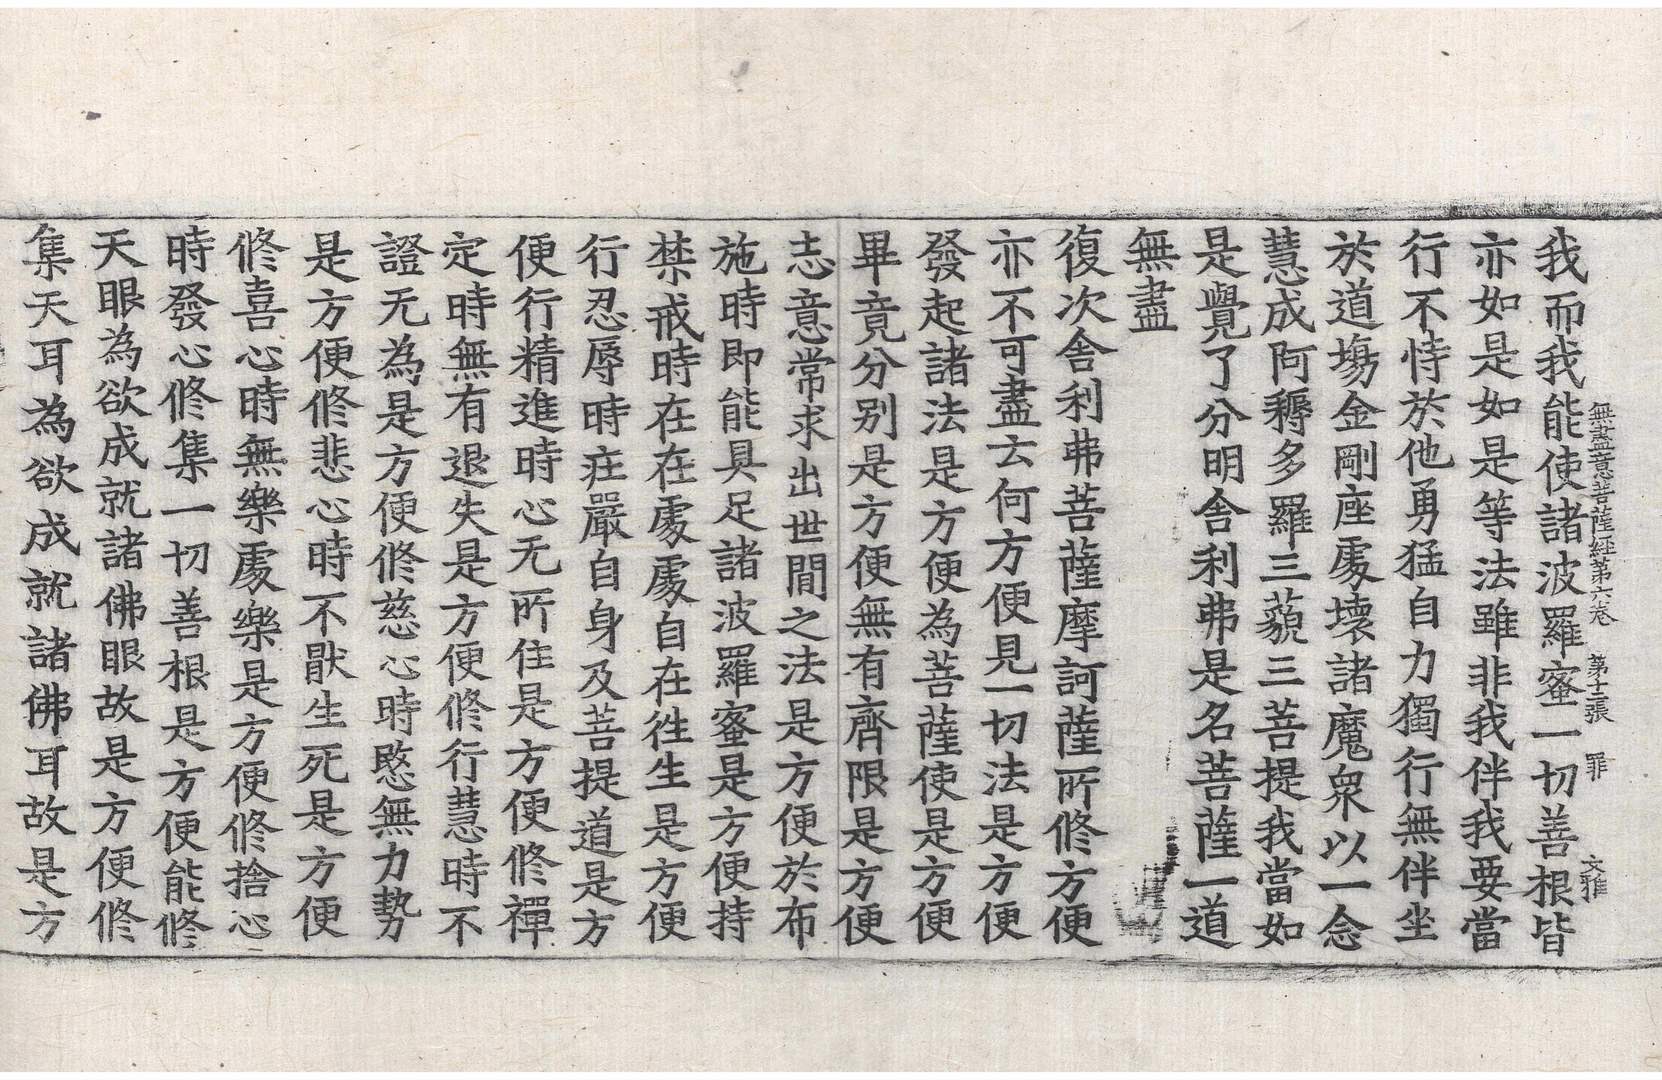 無盡意菩薩經第六卷 第十三張 罪 文雅
我而我能使諸波羅蜜一切善根皆
亦如是如是等法雖非我伴我要當
行不恃於他勇猛自力獨行無伴坐
於道場金剛座處壞諸魔衆以一念
慧成阿耨多羅三藐三菩提我當如
是覺了分明舍利弗是名菩薩一道
無盡
復次舍利弗菩薩摩訶薩所修方便
亦不可盡云何方便見一切法是方便
發起諸法是方便為菩薩使是方便
畢竟分別是方便無有齊限是方便
志意常求出世間之法是方便於布
施時即能具足諸波羅蜜是方便持
禁戒時在在處處自在徃生是方便
行忍辱時庄嚴自身及菩提道是方
便行精進時心无所住是方便修禪
定時無有退失是方便修行慧時不
證无為是方便修慈心時愍無力勢
是方便修悲心時不猒生死是方便
修喜心時無樂處樂是方便修捨心
時發心修集一切善根是方便能修
天眼為欲成就諸佛眼故是方便修
集天耳為欲成就諸佛耳故是方